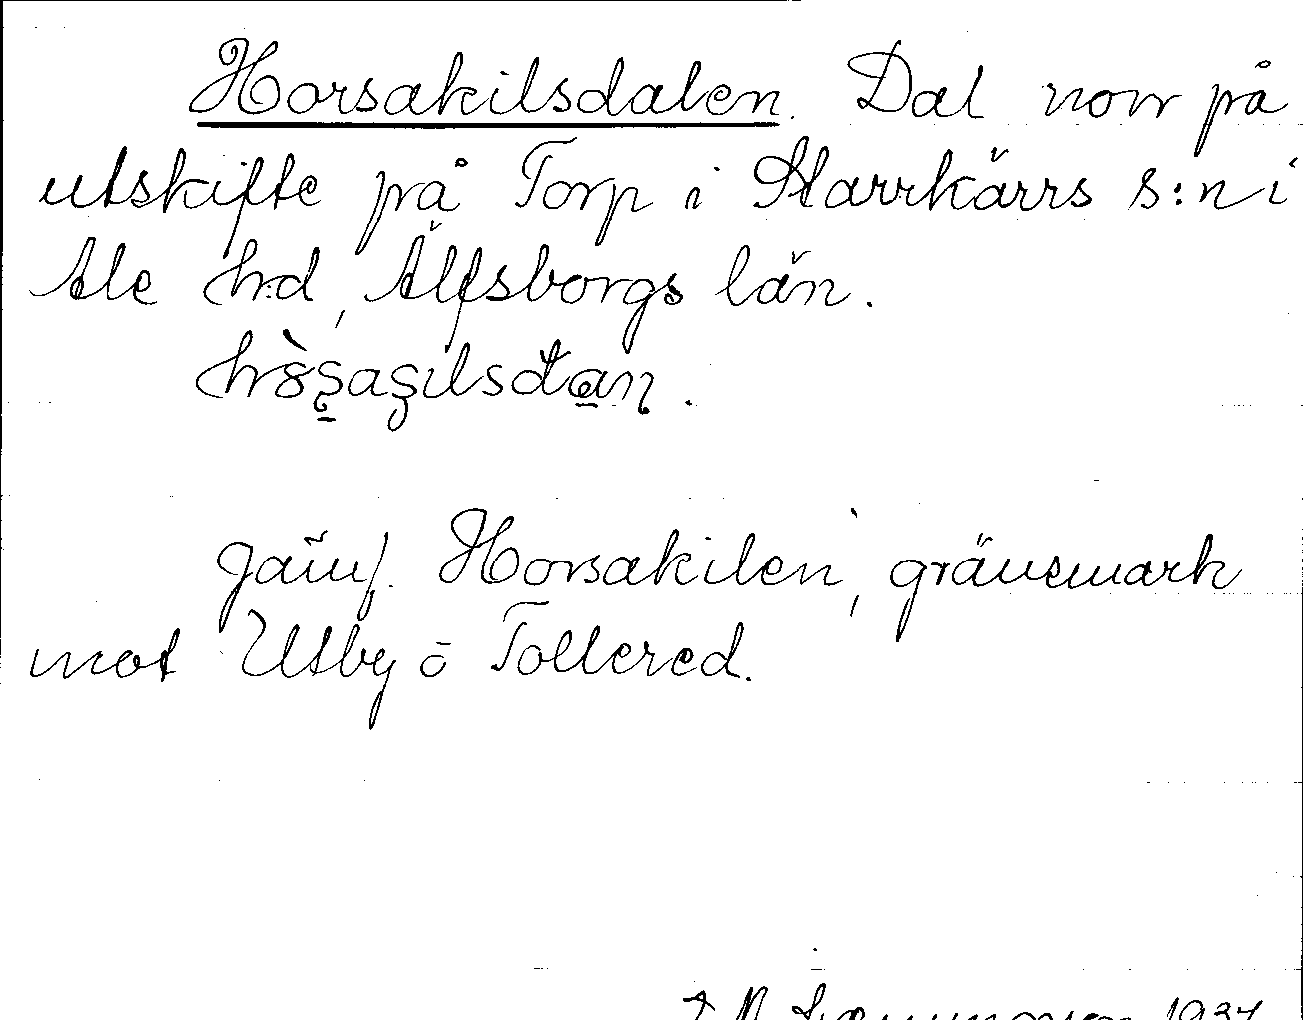 Horsakilsdalen. Dal norr på
utskifte på Torp i Starrkärrs s:n i
Ale hrd, Älfsborgs län.
jämf. Horsakilen, gränsmark
mot Utby ō Tollered.
1934